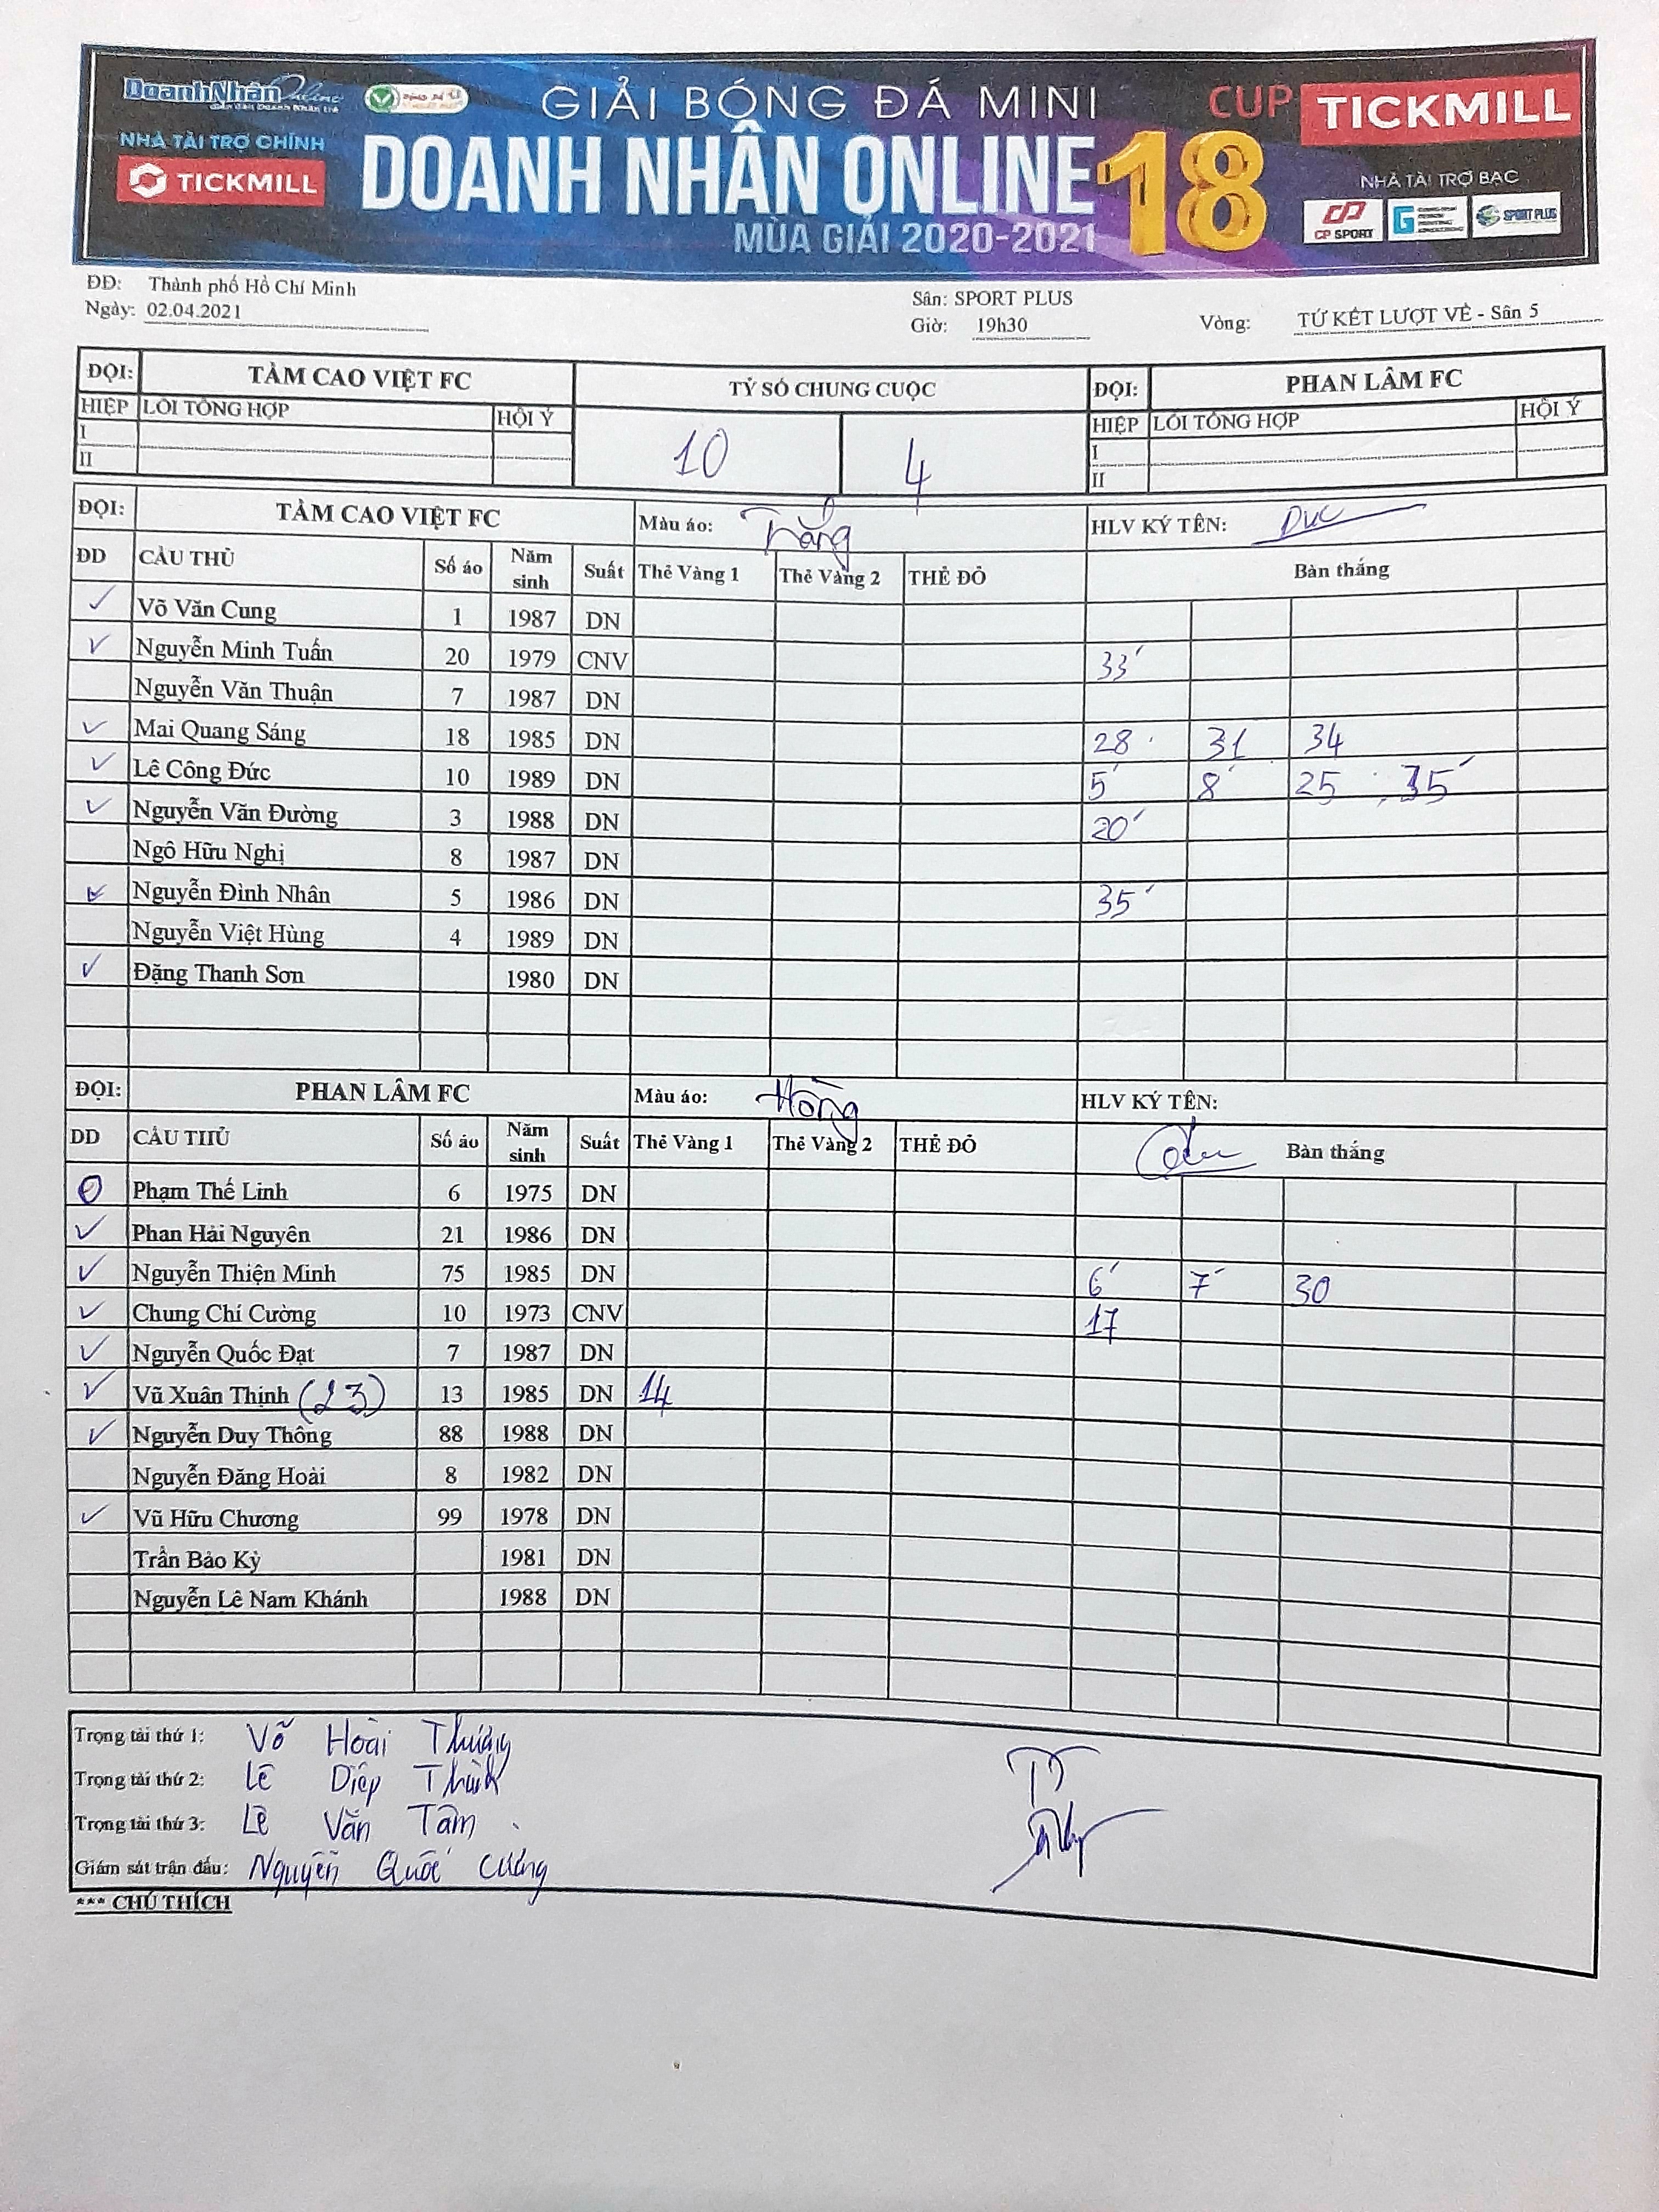 DoanhNhânOnline
NHÀ TÀI TRỢ CHÍNH
TICKMILL
GIẢI BÓNG ĐÁ MINI
DOANH NHÂN ONLINE 18
MÙA GIẢI 2020-2021
CUP TICKMILL
NHÀ TÀI TRỢ BẠC
CP SPORT
SPORT PLUS
ĐĐ: Thành phố Hồ Chí Minh
Ngày: 02.04.2021
Sân: SPORT PLUS
Giờ: 19h30
Vòng: TỨ KẾT LƯỢT VỀ - Sân 5
ĐỘI: TẦM CAO VIỆT FC TỶ SỐ CHUNG CUỘC ĐỘI: PHAN LÂM FC
HIỆP LỖI TỔNG HỢP HỘI Ý 10 4 HIỆP LỖI TỔNG HỢP HỘI Ý
I I
II II
ĐỘI: TẦM CAO VIỆT FC Màu áo: Trắng HLV KÝ TÊN: Duc
DD CẦU THỦ Số áo Năm sinh Suất Thẻ Vàng 1 Thẻ Vàng 2 THẺ ĐỎ Bàn thắng
✓ Võ Văn Cung 1 1987 DN
✓ Nguyễn Minh Tuấn 20 1979 CNV 33'
Nguyễn Văn Thuận 7 1987 DN
✓ Mai Quang Sáng 18 1985 DN 28 31 34
✓ Lê Công Đức 10 1989 DN 5' 8' 25 35'
✓ Nguyễn Văn Đường 3 1988 DN 20'
Ngô Hữu Nghị 8 1987 DN
✓ Nguyễn Đình Nhân 5 1986 DN 35'
Nguyễn Việt Hùng 4 1989 DN
✓ Đặng Thanh Sơn 1980 DN
ĐỘI: PHAN LÂM FC Màu áo: Hồng HLV KÝ TÊN:
DD CẦU THỦ Số áo Năm sinh Suất Thẻ Vàng 1 Thẻ Vàng 2 THẺ ĐỎ Bàn thắng
Phạm Thế Linh 6 1975 DN
✓ Phan Hải Nguyên 21 1986 DN
✓ Nguyễn Thiện Minh 75 1985 DN 6' 7' 30
✓ Chung Chí Cường 10 1973 CNV 17
✓ Nguyễn Quốc Đạt 7 1987 DN
✓ Vũ Xuân Thịnh (23) 13 1985 DN 14
✓ Nguyễn Duy Thông 88 1988 DN
Nguyễn Đăng Hoài 8 1982 DN
✓ Vũ Hữu Chương 99 1978 DN
Trần Bảo Kỳ 1981 DN
Nguyễn Lê Nam Khánh 1988 DN
Trọng tài thứ 1: Võ Hoài Thương
Trọng tài thứ 2: Lê Diệp Thình
Trọng tài thứ 3: Lê Văn Tâm
Giám sát trận đấu: Nguyễn Quốc Cường
*** CHÚ THÍCH